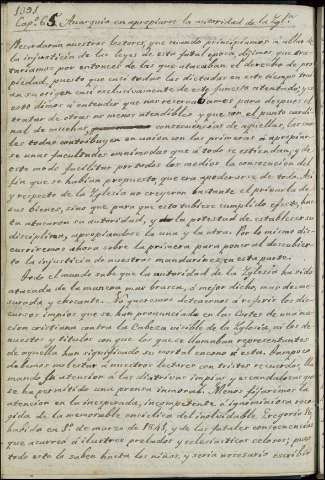 1391
Cap.º 65. Anarquía en apropiarse la autoridad de la Yg.ª
Recordarán nuestros lectores, que cuando principiamos á hablar de
la injusticia de las leyes de esta fatal época, dijimos que tra-
taríamos por entonces de las que atacaban el derecho de pro-
piedad, puesto que casi todas las dictadas en este tiempo son
en su o casi esclusivamente de este funesto atentado; y en
esto dimos á entender que nos reservábamos para despues el
tratar de otras no menos atendibles y que son el punto cardi-
nal de muchas consecuencias de aquellas, las cua-
les todas contribuyen en union con las primeras á apropiar-
se unas facultades omnimodas que á todo se estiendan, y de
este modo facilitar por todos los medios la consecucion del
fin que se habian propuesto que era apoderarse de todo. Así
respecto de la Yglesia no creyeron bastante el privarla de
sus bienes, sino que para que esto tubiese cumplido efecto, has-
ta atacaron su autoridad, y la potestad de establecer su
disciplina, apropiandose la una y la otra. Por lo mismo dis-
curriremos ahora sobre la primera para poner al descubier-
to la injusticia de nuestros mandarines en esta parte.
Todo el mundo sabe que la autoridad de la Yglesia ha sido
atacada de la manera mas brusca, ó mejor dicho, mas desme-
surada y chocante. No queremos detenernos á referir los dis-
cursos impíos que se han pronunciado en las Cortes de una na-
cion cristiana contra la Cabeza visible de la Yglesia, ni los de-
nuestos y títulos con que los que se llamaban representantes
de aquella han significado su mortal encono á esta, tampoco
debemos molestar á nuestros lectores con tristes recuerdos, lla-
mando la atencion á las diatrivas impías y escandalosas que
se ha permitido una prensa inmoral. Menos fijaremos la
atencion en la inesperada, incompetente é ignominiosa reco-
gida de la memorable encíclica del inolvidable Gregorio 16
habida en 1º de marzo de 1841, y de las fatales consecuencias
que acarreó á ilustres prelados y eclesiásticos celosos; pues
todo esto lo saben hasta los niños, y seria necesario escribir